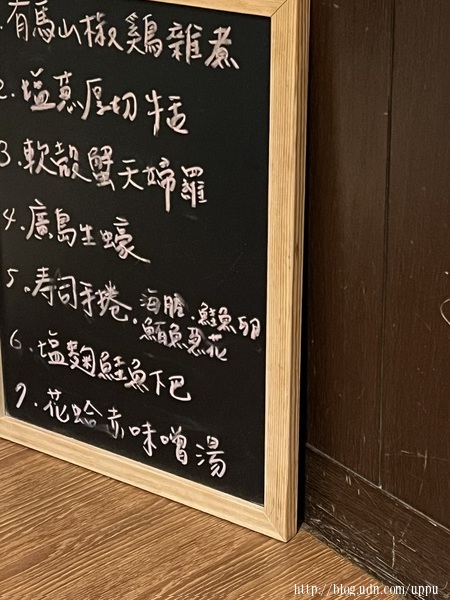 有馬山椒雞雜煮
2. 塩蔥厚切牛舌
3. 軟殼蟹天婦羅
4. 廣島生蠔
5. 寿司手捲. 海膽. 鮭魚卵
鮪魚蔥花
6. 塩麴鮭魚下巴
7. 花蛤赤味噌湯
http://blog.udn.com/uppu